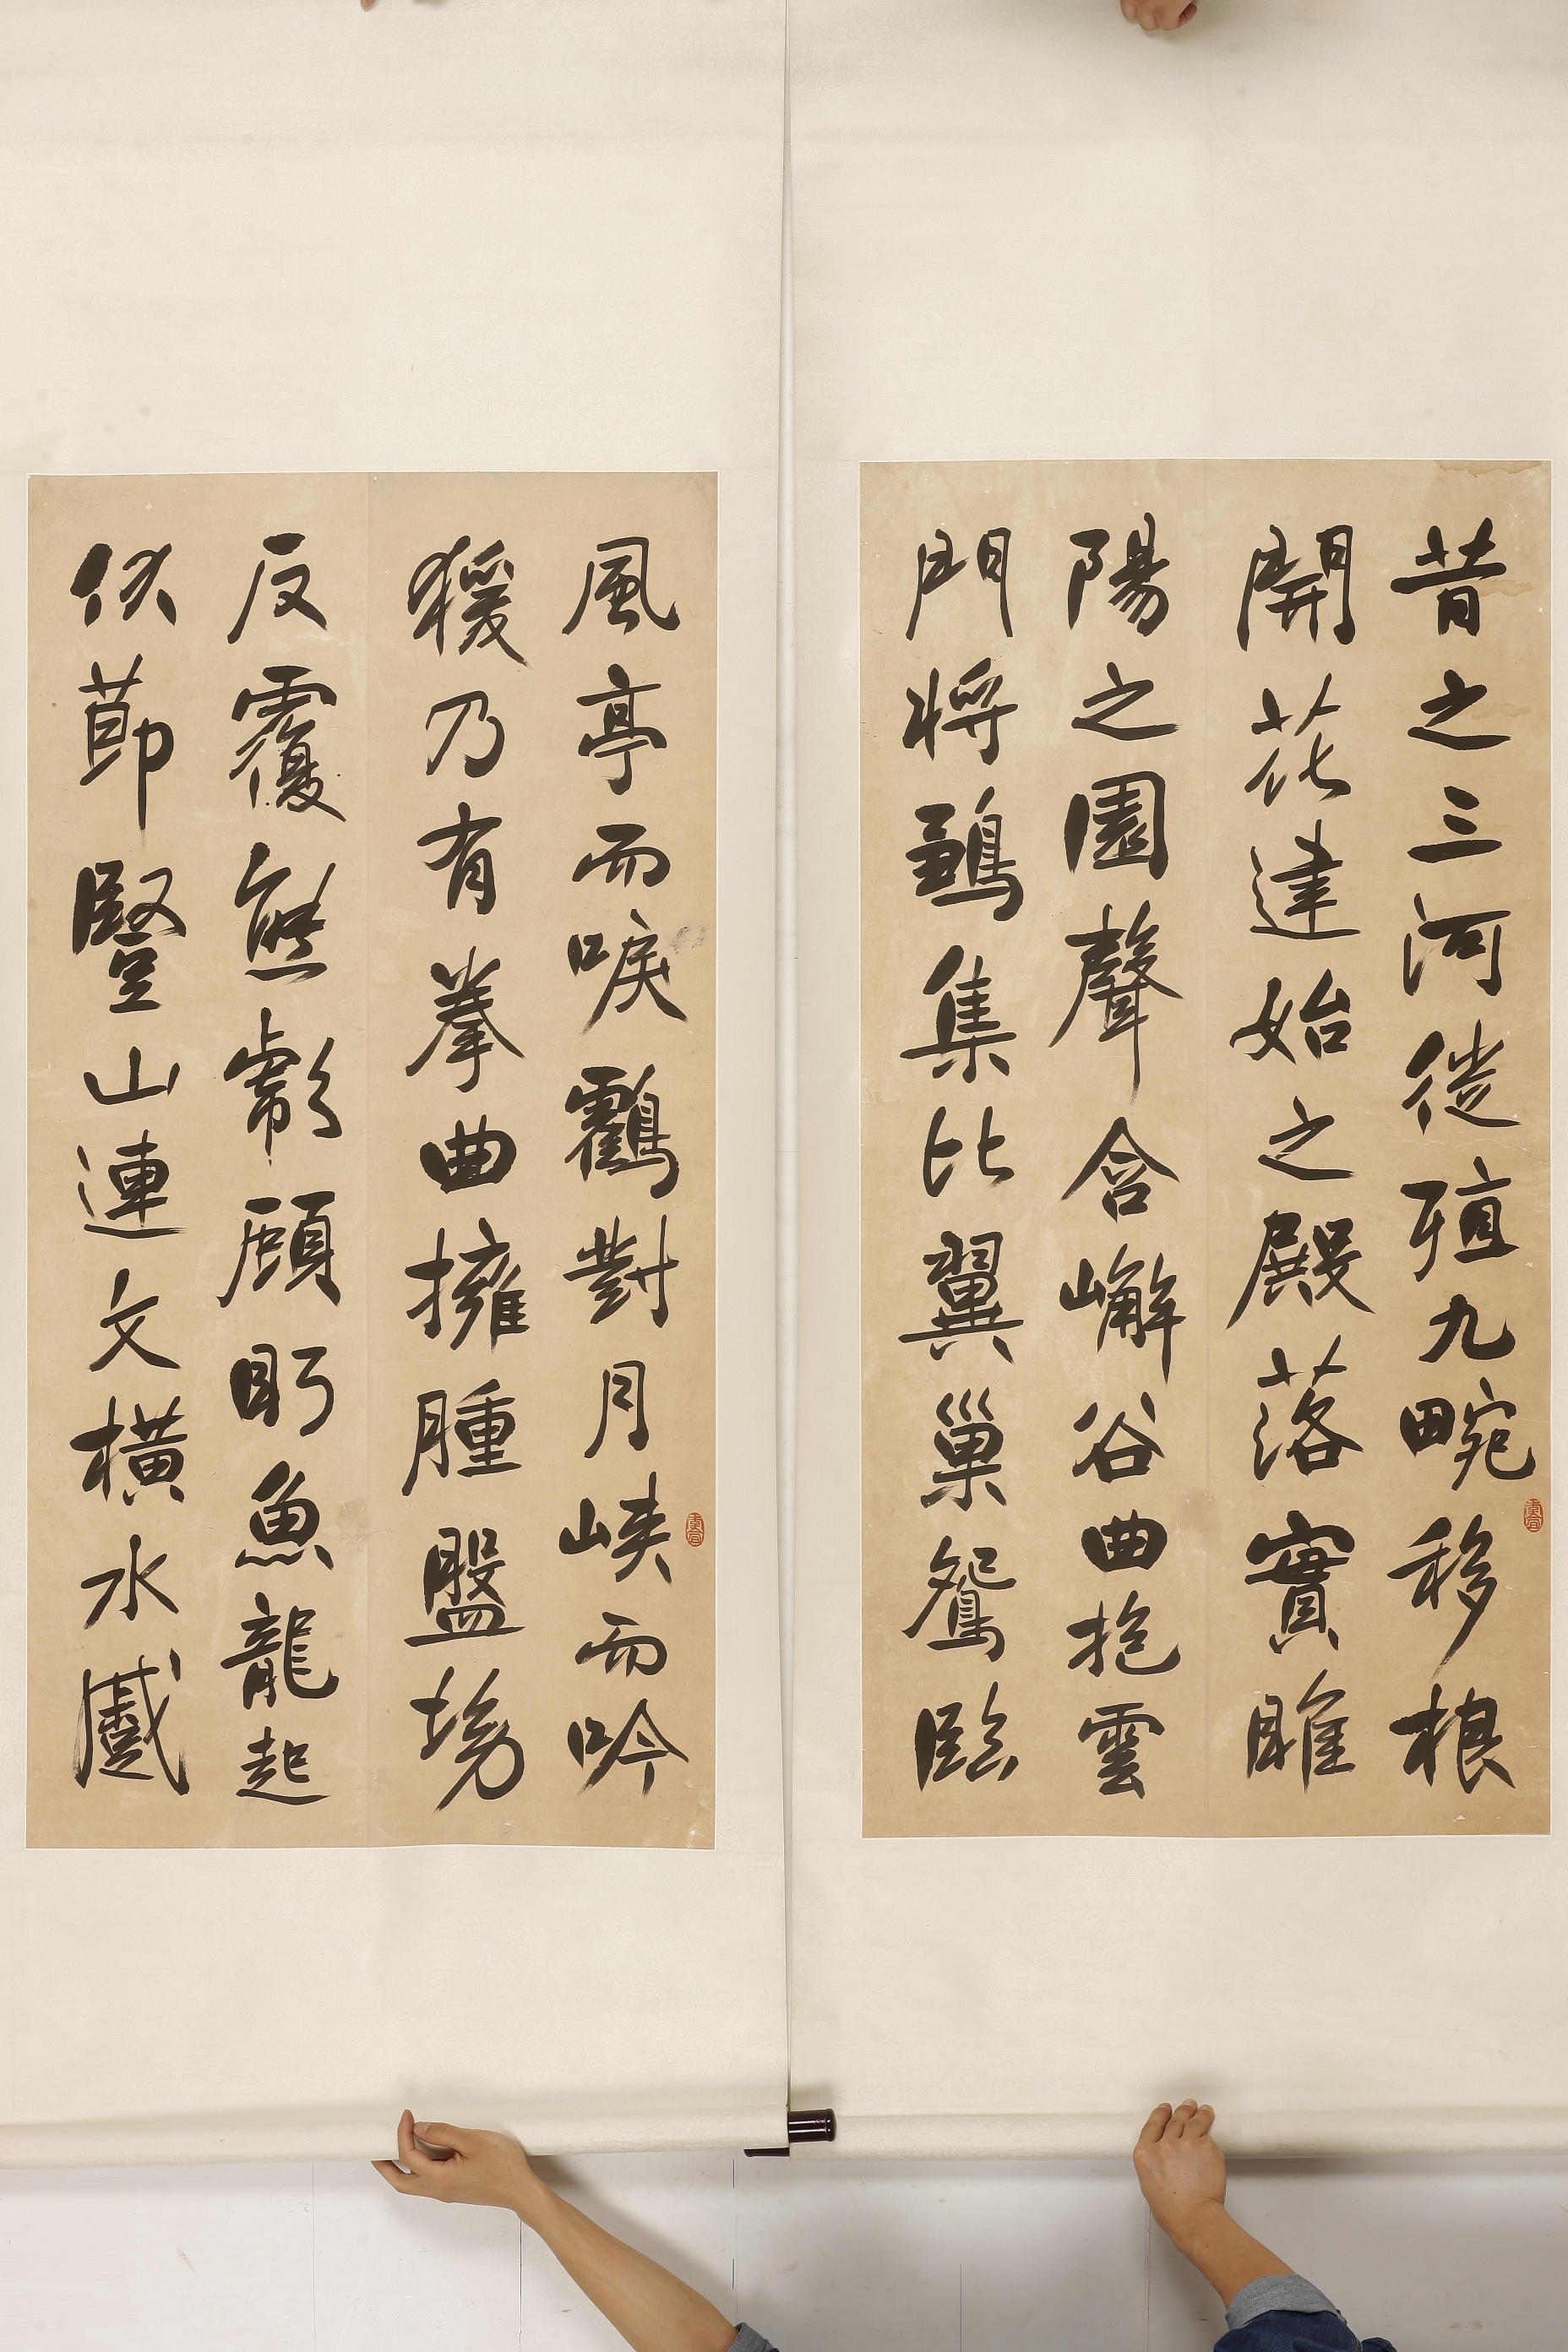 昔之三河徙殖九畹移根
開花建始之殿落實睢
陽之園聲含嶰谷曲抱雲
門將集比翼巢鴛臨
風亭而唳鸖對月峽而吟
猨乃有拳曲擁腫盤坳
反覆熊彪顧盻魚龍起
伏莭豎山連文橫水蹙